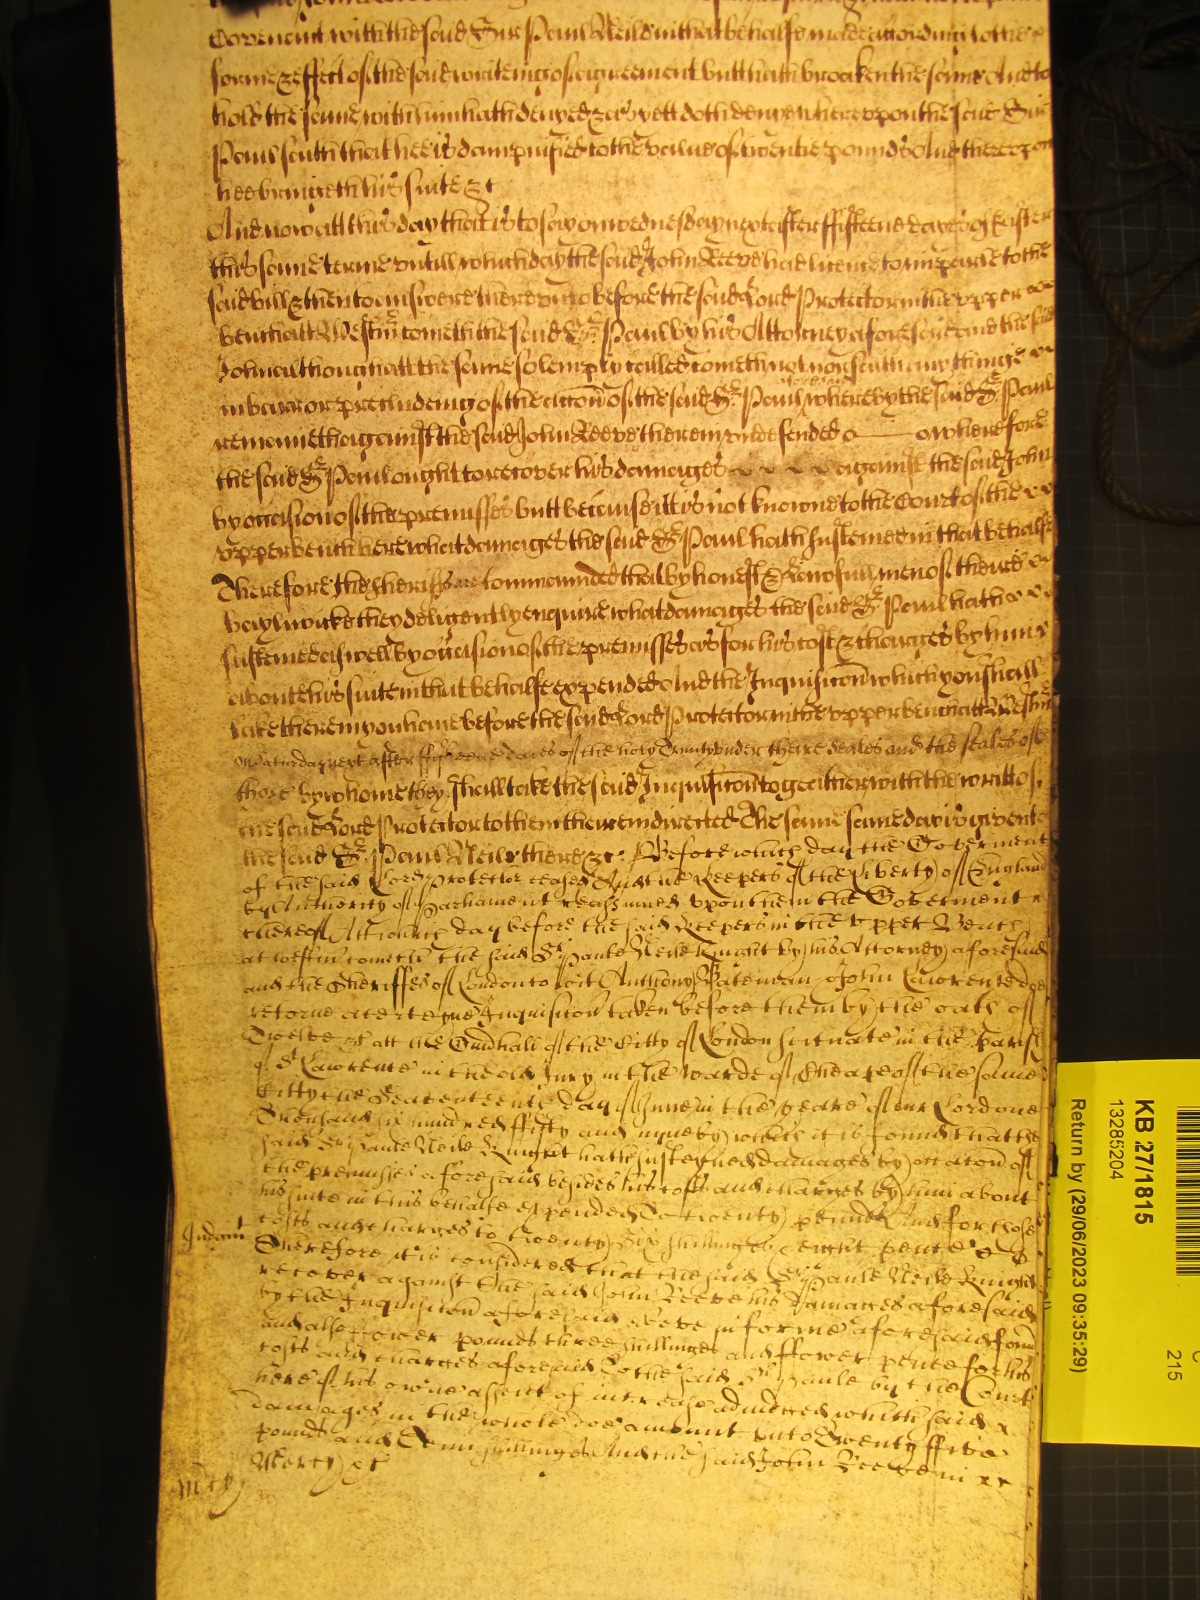 Covenant with the said Sir Paul Neile in that behalfe made according to the
forme & effect of the said writeing of agreement butt hath broaken the same And to
hold the same with him hath denyed & as yett doth deny whereuppon the said Sir
Paul saith that hee is dampnified to the value of twentie pounds And thereupon
hee bringeth his suite &c
And now att this day that is to say on wednesday next after fifteene dayes of Easter
this same terme untill which day the said John Reeve had licence to imparle to the
said bill & then to answere thereunto before the said Lord Protector in the upper
bench att Westmr cometh the said Sr. Paul by his Attorney aforesaid and the said
John althought att the same solemply called cometh not nor saith any thinge
in barr or precludeing of the accon of the said Sr. Paul whereby the said Sr. Paul
remaineth against the said John Reeve therein undefended wherefore
the said Sr. Paul ought to recover his damages against the said John
by occasion of the premisses butt because itt is not knowne to the Court of the
upper bench here what damages the said Sr. Paul hath susteined in that behalfe
Therefore the Sheriffs are commaunded that by honest & lawfull men of theire
baylywicke they deligently enquire what damages the said Sr. Paul hath
susteined aswell by occasion of the premisses as for his costs & charges by him
about his suite in that behalfe expended And the Inquisicon which you shall
take therein you have before the said Lord Protector in the upper bench att Westmr
on Saturday next after fifteene daies of the holy Trinity under theire seales and the seales of
those by whome they shall take the said Inquisicon togeather with the writt of
the said Lord Protector to them therein directed The same same day is given to
the said Sr. Paul Neile there &c. Before which day the Goverment
of the said Lord Protector ceased And the Keepers of the Liberty of England
by Authority of Parliament reassumed upon them the Goverment
thereof Att which day before the said Keepers in the upper Bench
at Westmr cometh the said Sr. Paule Neile Knight by his Attorney aforesaid
and the Sheriffes of London to wit Anthony Bateman John Lawrence doe
retorne a certeyne Inquisicon taken before them by the oath of
Twelve &c att the Guidhall of the Citty of London scituate in the parish
of St Lawrence in the old Jury in the warde of Cheape of the same
Citty the Seaventeenth day of June in the yeare of our Lord one
Thousand six hundred fifty and nyne by which it is found that the
said Sr. Paule Neile Knight hath susteyned damages by occacon of
the premisses aforesaid besides his costs and charges by him about
his suite in this behalfe expended To twenty pounds And for those
costs and charges to twenty six shillinges eight pence
Judgmt Therefore it is considered that the said Sr. Paule Neile Knight
recover against the said John Reeve his damages aforesaid
by the Inquisicon aforesaid above in forme aforesaid found
and alsoe ffower pounds three shillinges and ffower pence for his
costs and charges aforesaid To the said Sr. Paule by the Court
here of his owne assent of increase adiudged which said
damages in the whole doe amount unto Twenty ffive
pounds and Tenn shillinges And the said John Reeve in
mcy Mercy &c
KB 27/1815
13285204
Return by (29/06/2023 09:35:29)
215